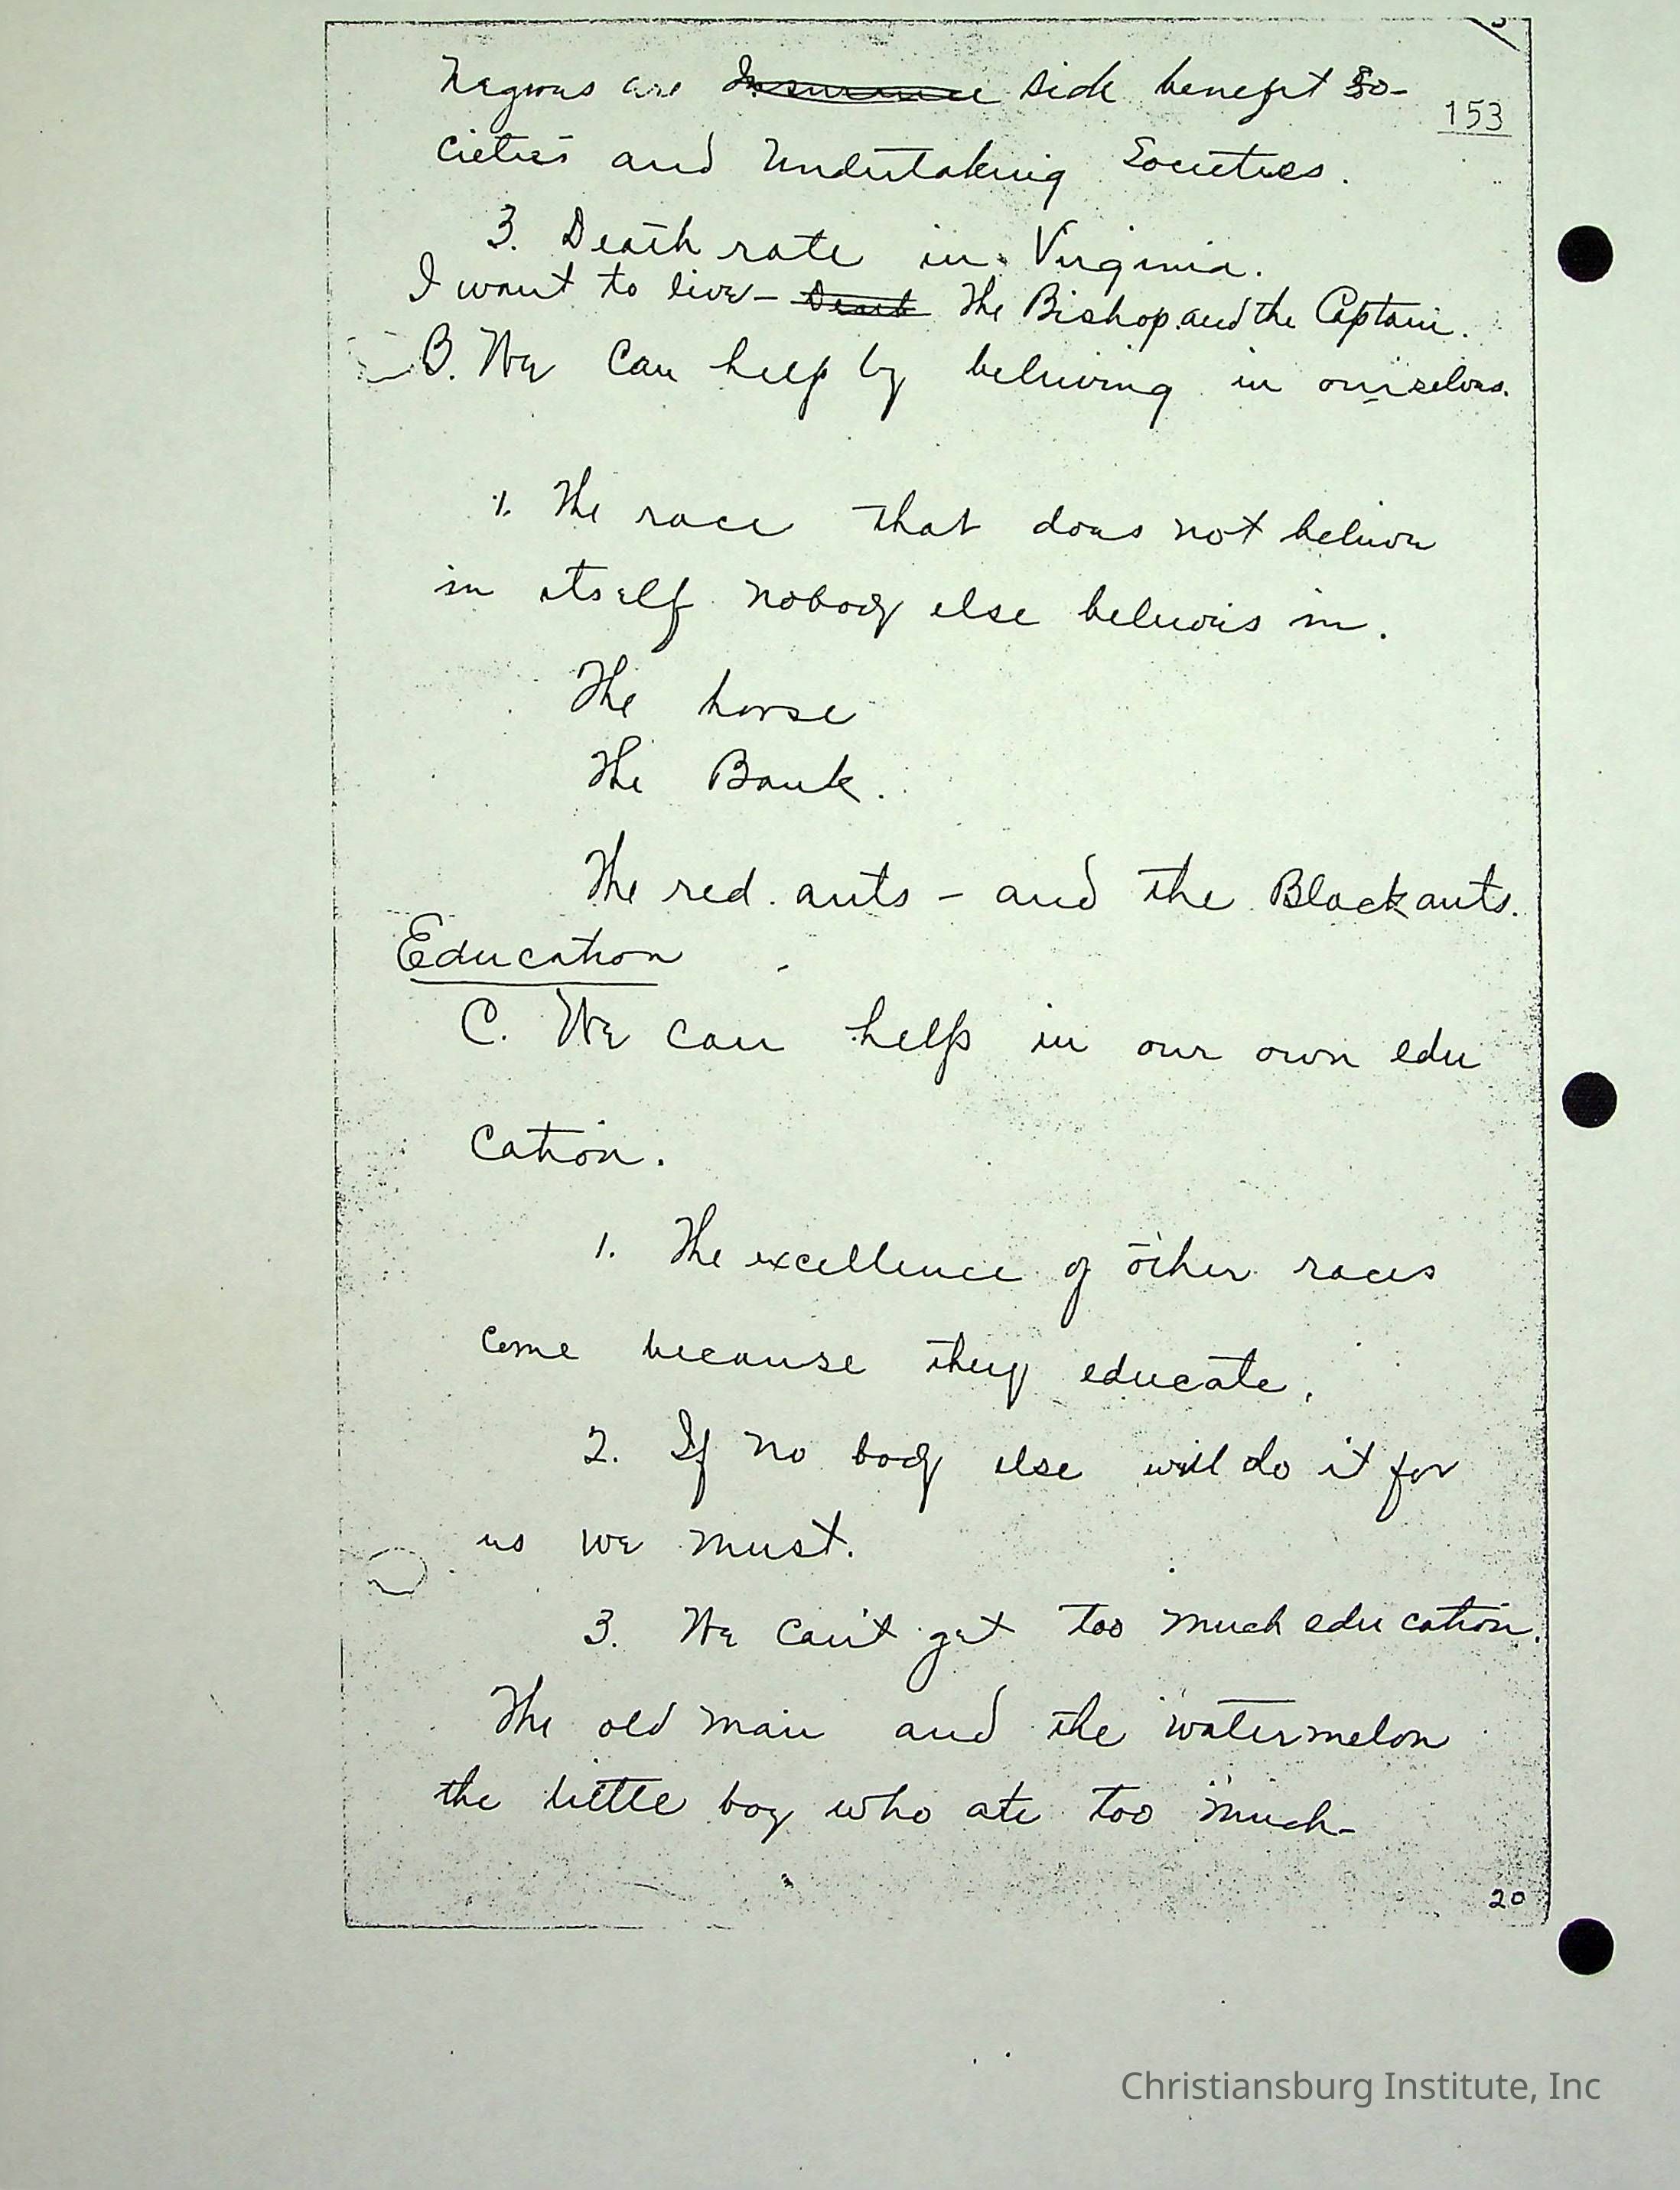 Negroes are Insurance sick benefit So-
153
cieties and Undertaking Societies.
3. Death rate in Virginia.
I want to live - Death The Bishop and the Captain.
B. We can help by believing in ourselves.
1. The race that does not believe
in itself nobody else believes in.
The horse
The Bank.
The red ants - and the Black ants.
Education
C. We can help in our own edu
cation.
1. The excellence of other races
come because they educate.
2. If no body else will do it for
us we must.
3. We can't get too much education.
The old man and the watermelon
the little boy who ate too much-
20
Christiansburg Institute, Inc